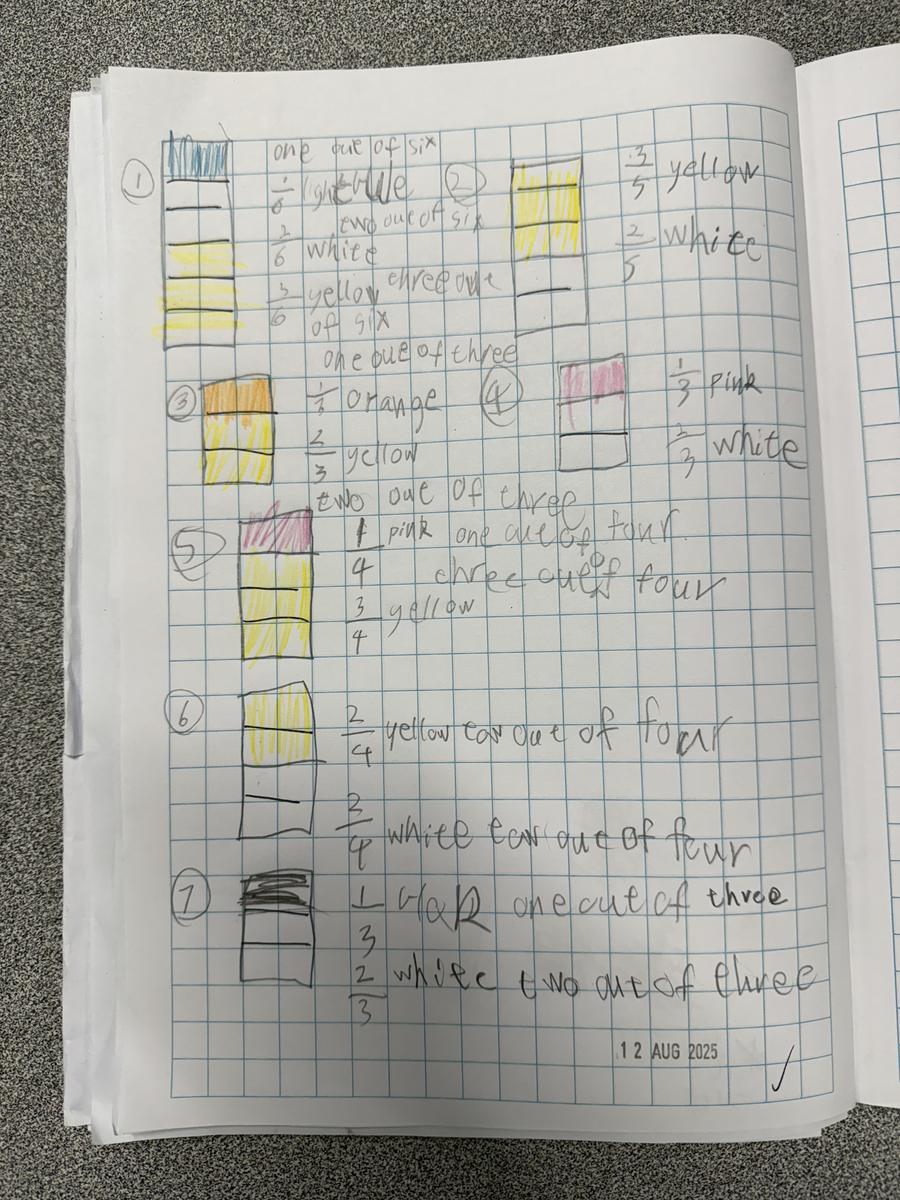 ① one oue of six
1/6 light blue
two out of six
2/6 white
3/6 yellow three out
of six
② 3/5 yellow
2/5 white
one oue of three
③ 1/3 orange
2/3 yellow
two out of three
④ 1/3 pink
2/3 white
⑤ 1/4 pink one out of four
three out of four
3/4 yellow
⑥ 2/4 yellow tow out of four
2/4 white tow out of four
⑦ 1/3 one out of three
2/3 white two out of three
12 AUG 2025